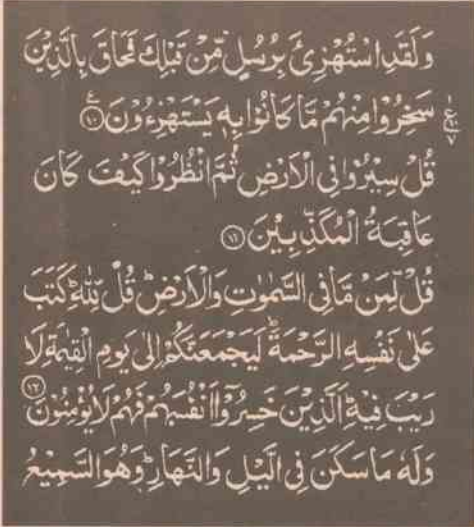 وَلَقَدِ اسْتُهْزِئَ بِرُسُلٍ مِّنْ قَبْلِكَ فَحَاقَ بِالَّذِيْنَ
سَخِرُوْا مِنْهُمْ مَّا كَانُوْا بِهٖ يَسْتَهْزِءُوْنَ ۧ۝۱۰
قُلْ سِيْرُوْا فِي الْاَرْضِ ثُمَّ انْظُرُوْا كَيْفَ كَانَ
عَاقِبَةُ الْمُكَذِّبِيْنَ ۝۱۱
قُلْ لِّمَنْ مَّا فِي السَّمٰوٰتِ وَالْاَرْضِ ؕ قُلْ لِّلّٰهِ ؕ كَتَبَ
عَلٰى نَفْسِهِ الرَّحْمَةَ ؕ لَيَجْمَعَنَّكُمْ اِلٰى يَوْمِ الْقِيٰمَةِ لَا
رَيْبَ فِيْهِ ؕ اَلَّذِيْنَ خَسِرُوْۤا اَنْفُسَهُمْ فَهُمْ لَا يُؤْمِنُوْنَ ۝۱۲
وَلَهٗ مَا سَكَنَ فِي الَّيْلِ وَالنَّهَارِ ؕ وَهُوَ السَّمِيْعُ